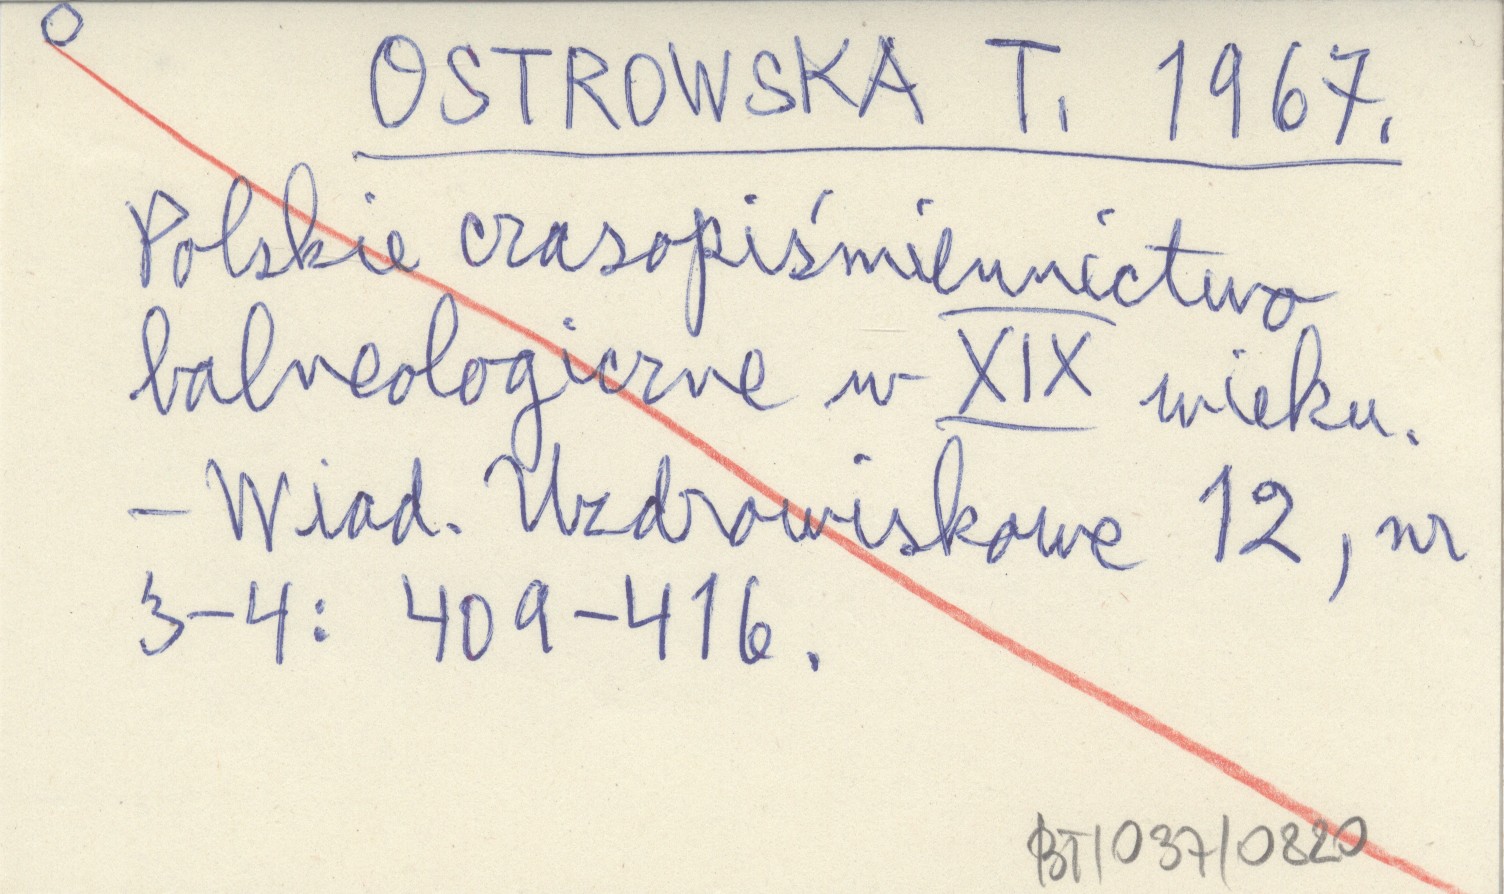 O
OSTROWSKA T. 1967.
Polskie czasopiśmiennictwo
balneologiczne w XIX wieku.
- Wiad. Uzdrowiskowe 12, nr
3-4: 409-416.
BT/037/0820